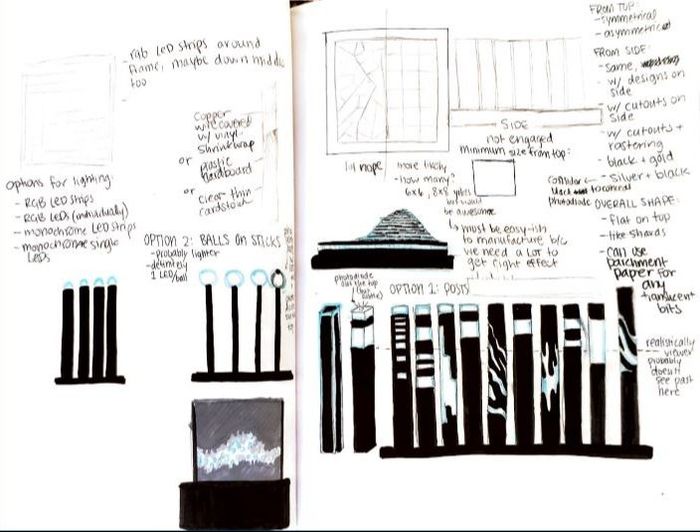 - rgb LED strips around
frame, maybe down middle
too
copper
wire covered
w/ vinyl
shrinkwrap
or plastic
hardboard
or clear thin
cardstock
options for lighting:
- RGB LED strips
- RGB LEDs (individually)
- monochrome LED strips
- monochrome single
LEDs
OPTION 2: BALLS ON STICKS
- probably lighter
- definitely
1 LED/ball
SIDE
not engaged
minimum size from top:
lol nope
more likely
- how many?
6x6, 8x8
but would
be awesome
must be easy-ish
to manufacture b/c
we need a LOT to
get right effect
photodiode
OPTION 1: POSTS
FROM TOP:
- symmetrical
- asymmetrical
FROM SIDE:
- same,
- w/ designs on
side
- w/ cutouts on
side
- w/ cutouts +
rastering
- black + gold
- silver + black
consider
to conceal
photodiode
OVERALL SHAPE:
- flat on top
- like shards
- can use
parchment
paper for
any
translucent
bits
realistically
viewer
probably
doesn't
see past
here